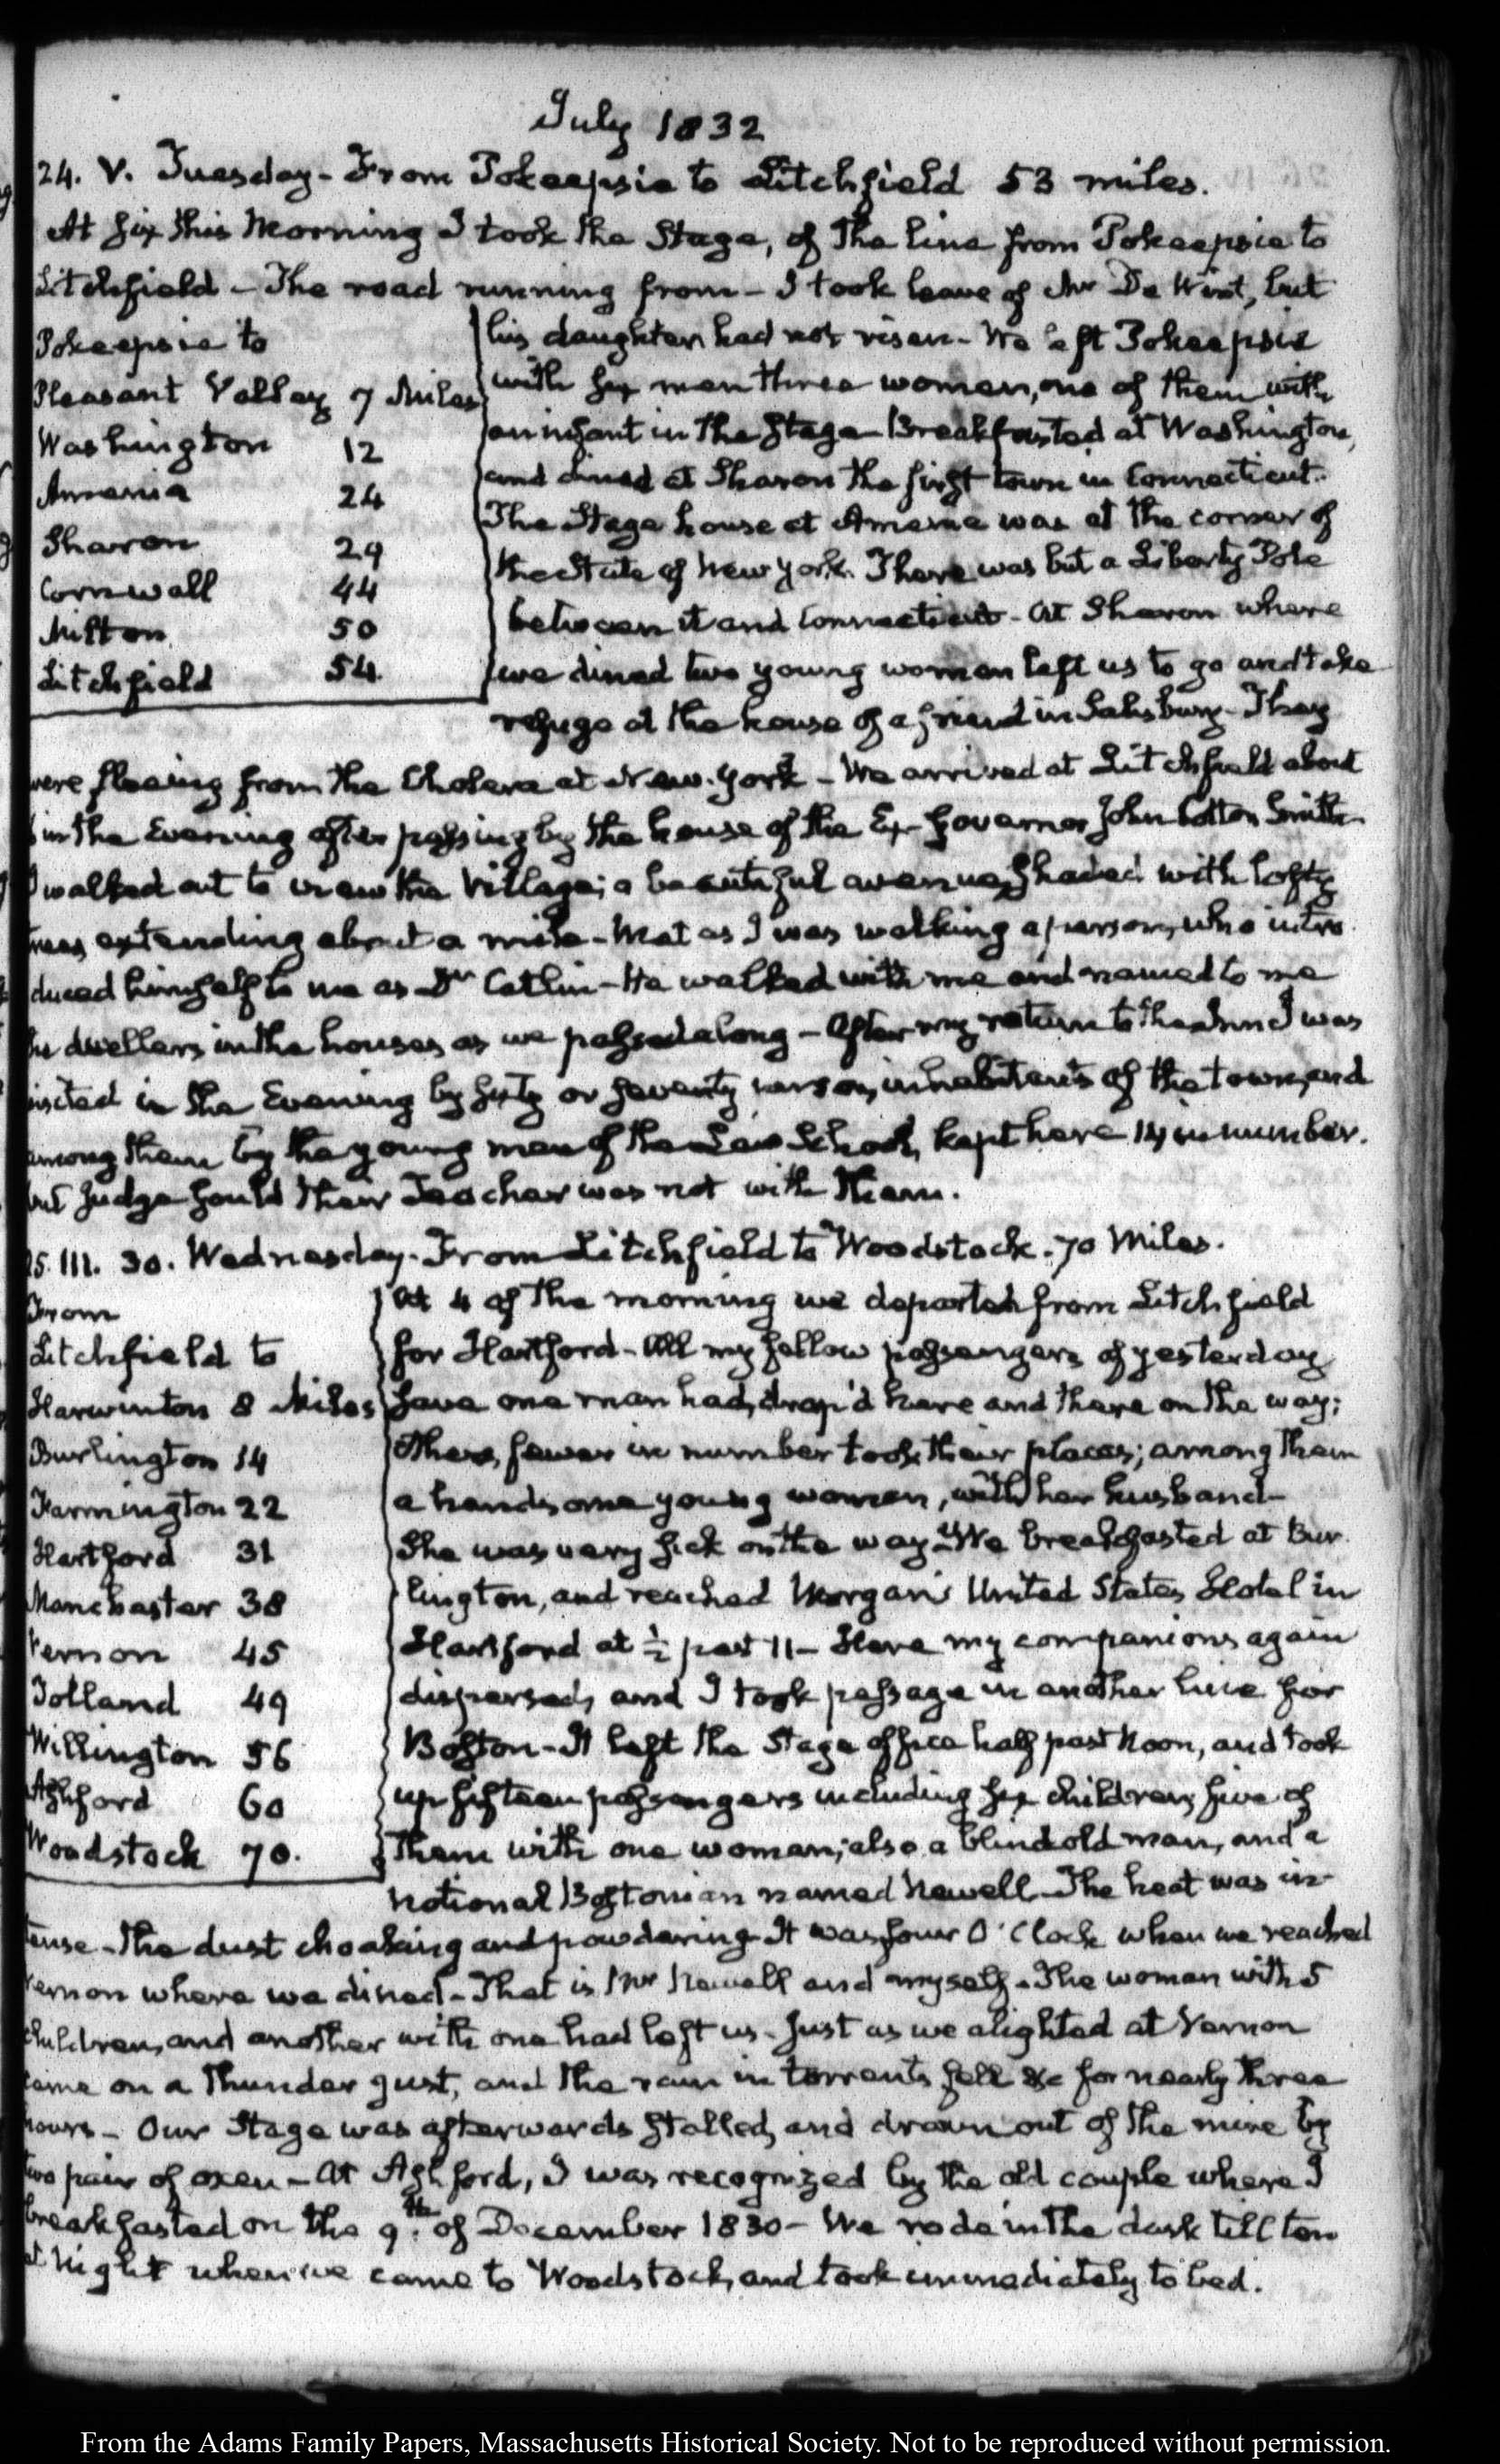 July 1832
24. V. Tuesday - From Pokeepsie to Litchfield 53 miles.
At six this Morning I took the Stage, of the line from Pokeepsie to
Litchfield - The road running from - I took leave of Mr De Wint, but
Pokeepsie to
Pleasant Valley 7 Miles
Washington 12
Amenia 24
Sharon 29
Cornwall 44
Milton 50
Litchfield 54
his daughter had not risen - We left Pokeepsie
with six men three women, one of them with
an infant in the Stage - Breakfasted at Washington,
and dined at Sharon the first town in Connecticut.
The Stage house at Amenia was at the corner of
the State of New York. There was but a Liberty Pole
between it and Connecticut - At Sharon where
we dined two young women left us to go and take
refuge at the house of a friend in Salisbury - They
were fleeing from the Cholera at New-York - We arrived at Litchfield about
in the Evening after passing by the house of the Ex-Governor John Cotton Smith
I walked out to view the Village; a beautiful avenue, shaded with lofty
trees extending about a mile - Met as I was walking a person, who intro
duced himself to me as Dr Catlin - He walked with me and named to me
the dwellers in the houses as we passed along - After my return to the Inn I was
visited in the Evening by sixty or seventy inhabitants of the town, and
among them by the young men of the Law School, kept here 14 in number.
but Judge Gould their Teacher was not with them.
25. III. 30. Wednesday. From Litchfield to Woodstock. 70 Miles.
From
Litchfield to
Harwinton 8 Miles
Burlington 14
Farmington 22
Hartford 31
Manchester 38
Vernon 45
Tolland 49
Willington 56
Ashford 60
Woodstock 70.
At 4 of the morning we departed from Litchfield
for Hartford - All my fellow passengers of yesterday
save one man had, drop'd here and there on the way;
others, fewer in number took their places; among them
a handsome young woman, with her husband -
She was very sick on the way - We breakfasted at Bur
lington, and reached Morgan's United States Hotel in
Hartford at ½ past 11 - Here my companions again
dispersed, and I took passage in another line for
Boston - It left the Stage office half past Noon, and took
up fifteen passengers including six children, five of
them with one woman; also a blind old man, and a
notional Bostonian named Newell - The heat was in-
tense - the dust choaking and powdering - It was four O'Clock when we reached
Vernon where we dined - That is Mr Newell and myself - The woman with 5
children, and another with one had left us - Just as we alighted at Vernon
came on a Thunder gust, and the rain in torrents fell &c for nearly three
hours - Our Stage was afterwards stalled, and drawn out of the mire by
two pair of oxen - At Ashford, I was recognized by the old couple where I
breakfasted on the 9th. of December 1830 - We rode in the dark till ten
at Night when we came to Woodstock, and took immediately to bed.
From the Adams Family Papers, Massachusetts Historical Society. Not to be reproduced without permission.